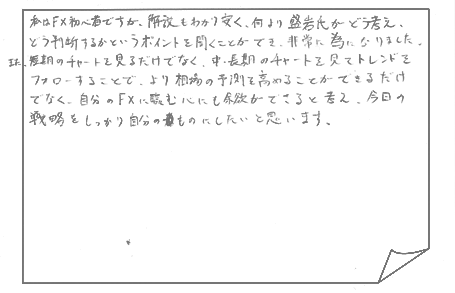 私はFX初心者ですが、解説もわかり安く、何より盛岩氏がどう考え、
どう判断するかというポイントを聞くことができ、非常に為になりました。
また、短期のチャートを見るだけでなく、中・長期のチャートを見てトレンドを
フォローすることで、より相場の予測を高めることができるだけ
でなく、自分のFXに臨む心にも余欲ができると考え、今日の
戦略をしっかり自分のものにしたいと思います。